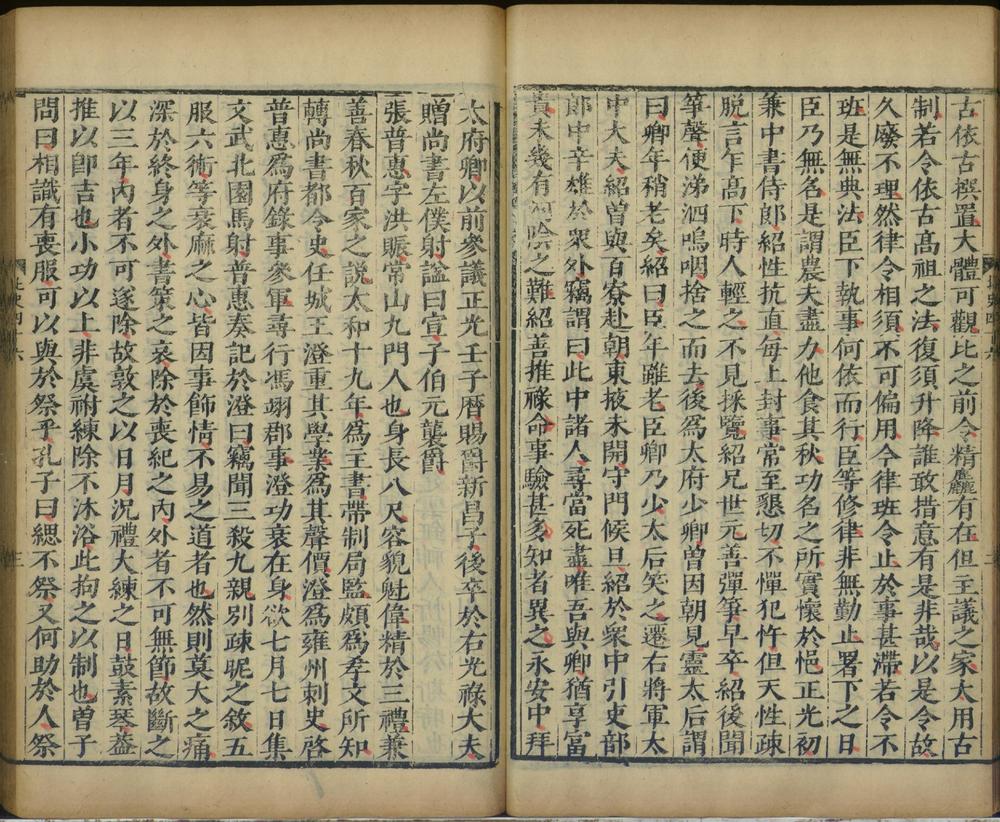 古依古撰置大體可觀比之前令精麤有在但主議之家太用古
制若令依古高祖之法復須升降誰敢措意有是非哉以是令故
久廢不理然律令相須不可偏用今律班令止於事甚滯若令不
班是無典法臣下執事何依而行臣等修律非無勤止署下之日
臣乃無名是謂農夫盡力他食其秋功名之所實懷於悒正光初
兼中書侍郎紹性抗直每上封事常至懇切不憚犯忤但天性疎
脫言乍高下時人輕之不見採覽紹兄世元善彈箏早卒紹後聞
箏聲便涕泗嗚咽捨之而去後爲太府少卿曾因朝見靈太后謂
曰卿年稍老矣紹曰臣年雖老臣卿乃少太后笑之遷右將軍太
中大夫紹曽與百寮赴朝東掖未開守門候旦紹於衆中引吏部
郎中辛雄於衆外竊謂曰此中諸人尋當死盡唯吾與卿猶享富
貴未幾有河陰之難紹善推祿命事驗甚多知者異之永安中拜
太府卿以前參議正光壬子曆賜爵新昌子後卒於右光祿大夫
贈尚書左僕射諡曰宣子伯元襲爵
張普惠字洪賑常山九門人也身長八尺容貌魁偉精於三禮兼
善春秋百家之説太和十九年爲主書帶制局監頗爲孝文所知
轉尚書都令史任城王澄重其學業爲其聲價澄爲雍州刺史啓
普惠爲府錄事參軍尋行馮翊郡事澄功衰在身欲七月七日集
文武北園馬射普惠奏記於澄曰竊聞三殺九親別疎昵之敘五
服六術等衰麻之心皆因事飾情不易之道者也然則莫大之痛
深於終身之外書策之哀除於喪紀之內外者不可無節故斷之
以三年內者不可遂除故敦之以日月況禮大練之日鼓素琴蓋
推以即吉也小功以上非虞祔練除不沐浴此拘之以制也曽子
問曰相識有喪服可以與於祭乎孔子曰緦不祭又何助於人祭